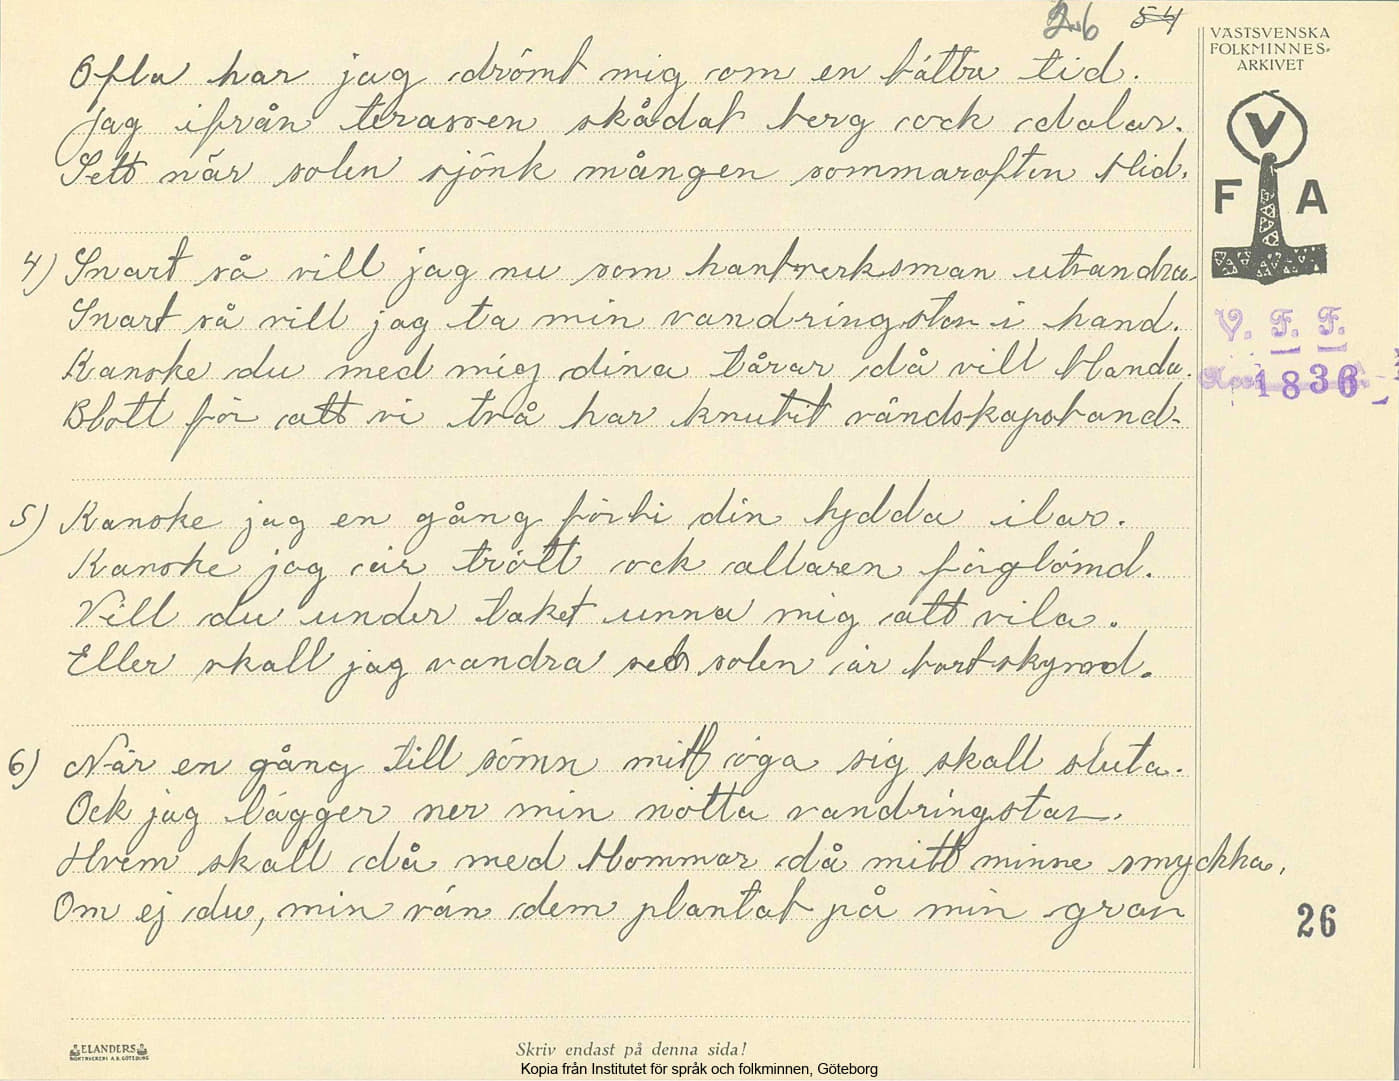 26 54
VÄSTSVENSKA
FOLKMINNES-
ARKIVET
Ofta har jag drömt mig om en bättre tid.
Jag ifrån terassen skådat berg ock dalar.
Sett när solen sjönk mången sommarafton blid.
V
F A
4) Snart så vill jag nu som hantverksman utvandra
Snart så vill jag ta min vandringstav i hand.
V. F. F.
1836
Kanske du med mig dina tårar då vill blanda.
Blott för att vi två har knutit vändskapsband.
5) Kanske jag en gång förbi din hydda ilar.
Kanske jag är trött ock allaren förglömd.
Vill du under taket unna mig att vila.
Eller skall jag vandra sen solen är bortskymd.
6) När en gång till sömn mitt öga sig skall sluta.
Ock jag lägger ner min nötta vandringstav.
Hvem skall då med blommor då mitt minne smyckka,
Om ej du, min vän dem plantat på min grav
26
ELANDERS
BOKTRYCKERI A.B. GÖTEBORG
Skriv endast på denna sida!
Kopia från Institutet för språk och folkminnen, Göteborg